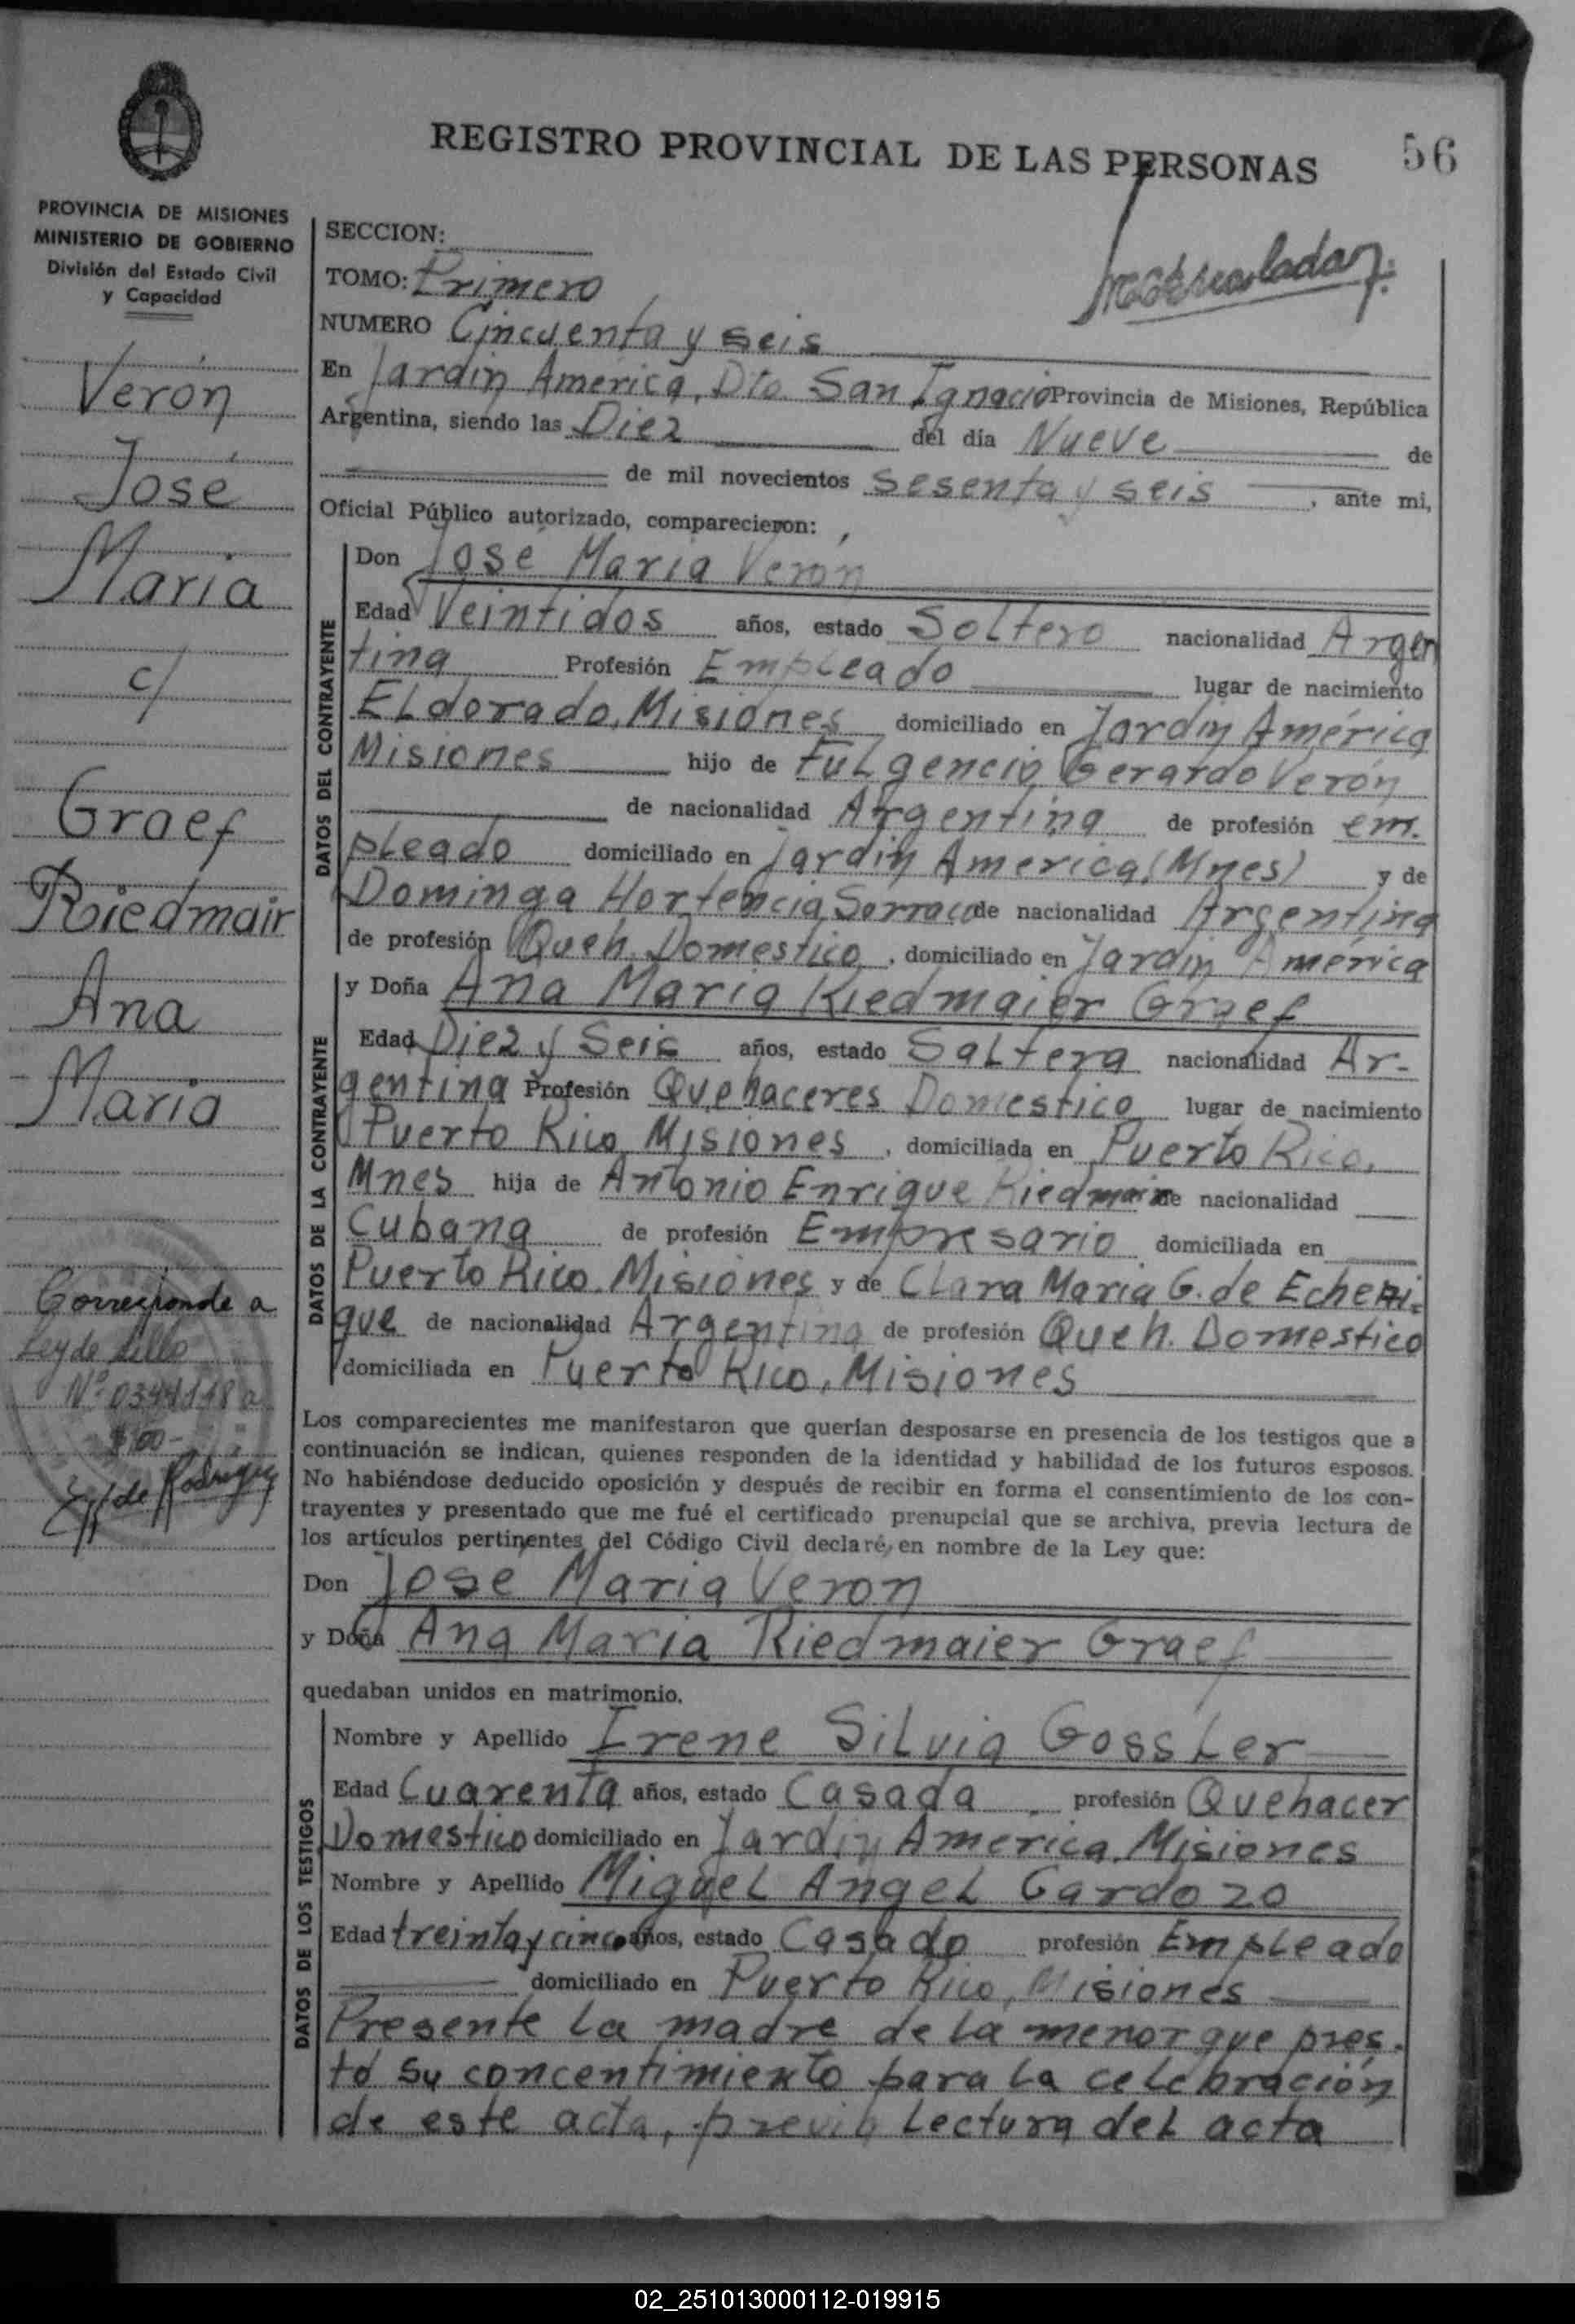 REGISTRO PROVINCIAL DE LAS PERSONAS
56
PROVINCIA DE MISIONES
MINISTERIO DE GOBIERNO
División del Estado Civil
y Capacidad
Verón
José
María
c/
Graef
Riedmair
Ana
María
Corresponde a
Ley de sello
Nº 0344118 a
$100-
de Rodriguez
SECCION:
TOMO: Primero
NUMERO Cincuenta y seis
En Jardín América, Dto. San Ignacio Provincia de Misiones, República
Argentina, siendo las Diez del día Nueve de
de mil novecientos Sesenta y seis, ante mi,
Oficial Público autorizado, comparecieron:
DATOS DEL CONTRAYENTE
Don José María Verón
Edad Veintidos años, estado Soltero nacionalidad Argen
tina Profesión Empleado lugar de nacimiento
Eldorado, Misiones domiciliado en Jardín América
Misiones hijo de Fulgencio Gerardo Verón
de nacionalidad Argentina de profesión em.
pleado domiciliado en Jardín America, (Mnes) y de
Dominga Hortencia de nacionalidad Argentina
de profesión Queh. Domestico, domiciliado en Jardín América
DATOS DE LA CONTRAYENTE
y Doña Ana María Riedmaier Graef
Edad Diez y Seis años, estado Saltera nacionalidad Ar-
gentina Profesión Quehaceres Domestico lugar de nacimiento
Puerto Rico, Misiones, domiciliada en Puerto Rico,
Mnes hija de Antonio Enrique Riedmair de nacionalidad
Cubana de profesión Empresario domiciliada en
Puerto Rico, Misiones y de Clara María G. de Echeni-
que de nacionalidad Argentina de profesión Queh. Domestico
domiciliada en Puerto Rico, Misiones
Los comparecientes me manifestaron que querían desposarse en presencia de los testigos que a
continuación se indican, quienes responden de la identidad y habilidad de los futuros esposos.
No habiéndose deducido oposición y después de recibir en forma el consentimiento de los con-
trayentes y presentado que me fué el certificado prenupcial que se archiva, previa lectura de
los artículos pertinentes del Código Civil declaré, en nombre de la Ley que:
Don José María Veron
y Doña Ana María Riedmaier Graef
quedaban unidos en matrimonio.
DATOS DE LOS TESTIGOS
Nombre y Apellido Irene Silvia Gossler
Edad Cuarenta años, estado Casada, profesión Quehacer
Domestico domiciliado en Jardín America, Misiones
Nombre y Apellido Miguel Angel Cardozo
Edad treinta y cinco años, estado Casado profesión Empleado
domiciliado en Puerto Rico, Misiones
Presente la madre de la menor que pres-
tó su concentimiento para la celebración
de este acta, previa lectura del acta
02_251013000112-019915